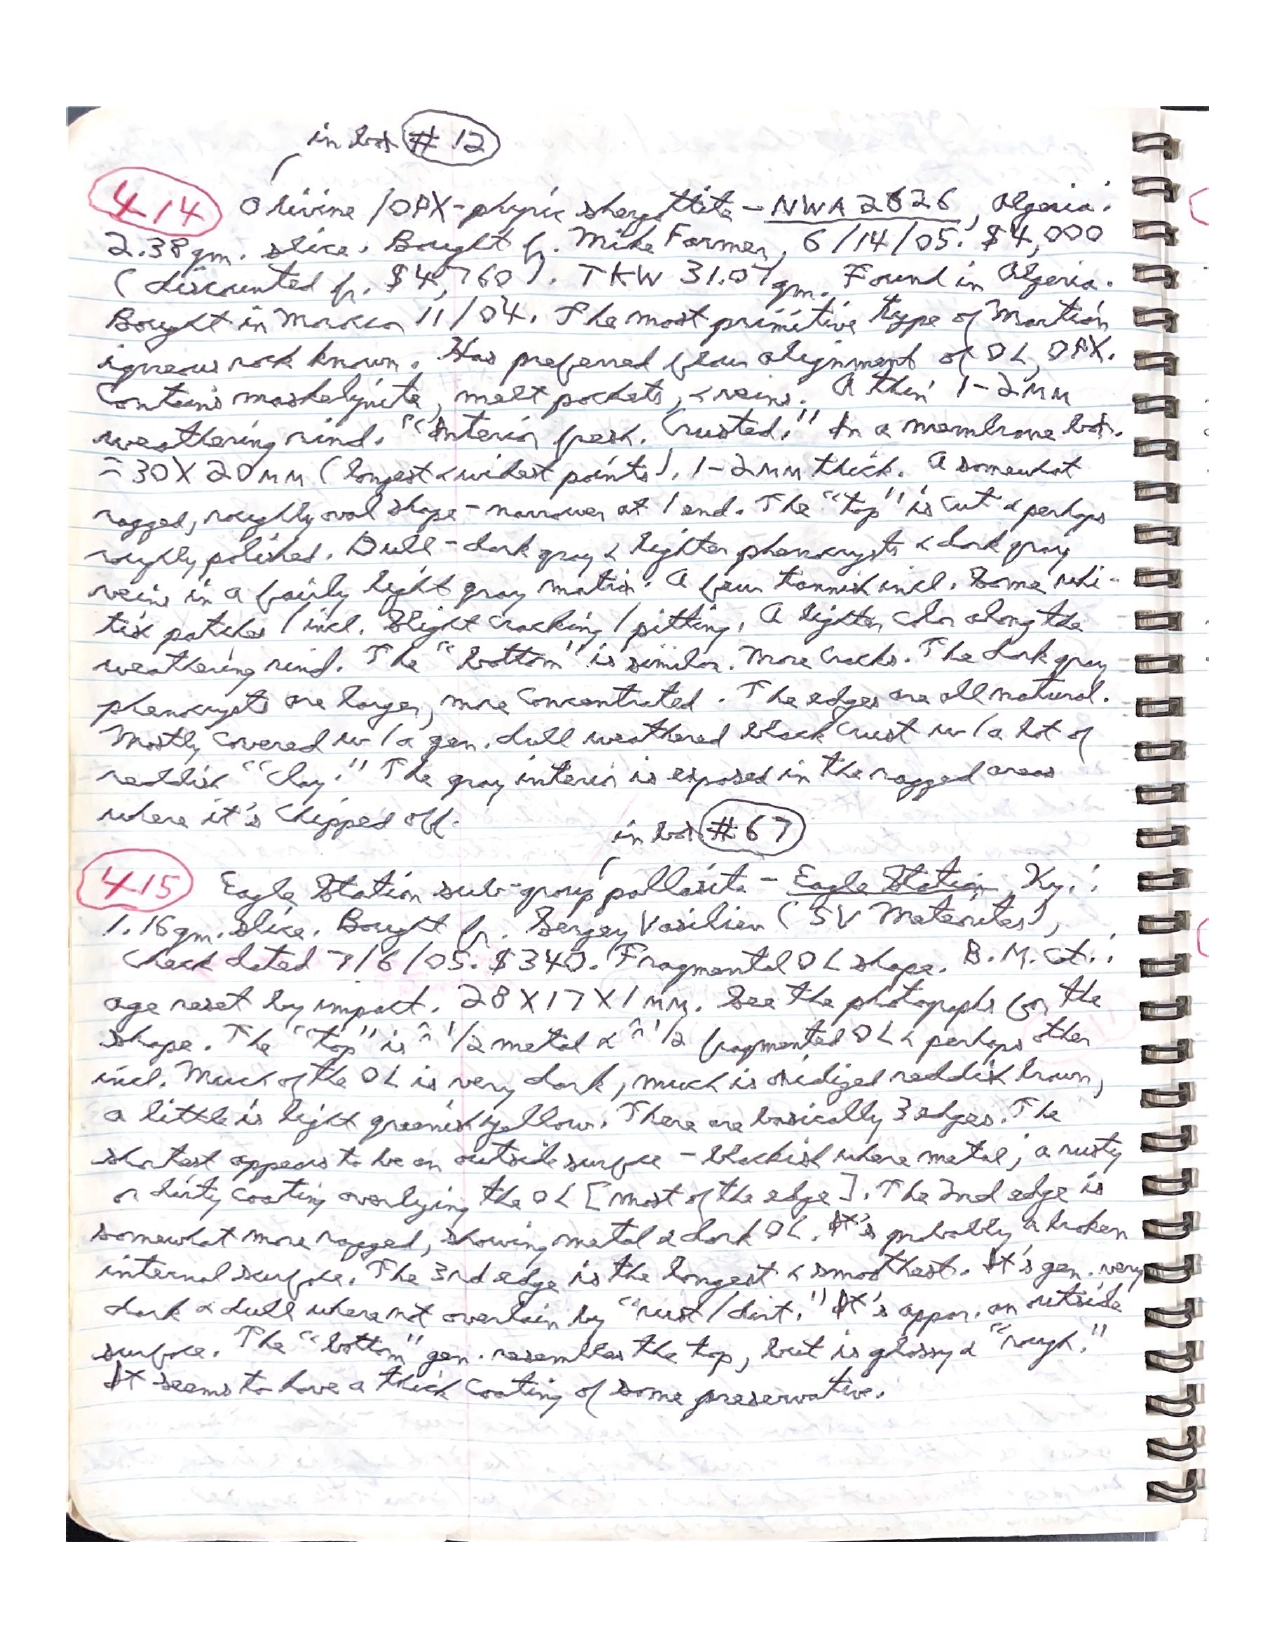 in box #12
414 Olivine/OPX-phyric shergottite - NWA 2626, Algeria:
2.38gm. slice. Bought fr. Mike Farmer, 6/14/05. $4,000
(discounted fr. $4,760). TKW 31.07gm. Found in Algeria.
Bought in Morocco 11/04. The most primitive type of Martian
igneous rock known. Has preferred flow alignment of OL, OPX.
Contains maskelynite, melt pockets, & veins. A thin 1-2MM
weathering rind. "Interior fresh. Crusted." In a membrane box.
≈ 30 X 20MM (longest & widest points), 1-2MM thick. A somewhat
ragged, roughly oval shape - narrower at 1 end. The "top" is cut & perhaps
roughly polished. Dull - dark gray & lighter phenocrysts & dark gray
veins in a fairly light gray matrix. A few tannish incl. Some whi-
tish patches/incl. Slight cracking/pitting. A lighter color along the
weathering rind. The "bottom" is similar. More cracks. The dark gray
phenocrysts are larger, more concentrated. The edges are all natural.
Mostly covered w/a gen. dull weathered black crust w/a lot of
reddish "clay." The gray interior is exposed in the ragged areas
where it's chipped off.
in box #67
415 Eagle Station sub-group pallasite - Eagle Station, Ky.:
1.16gm. slice. Bought fr. Sergey Vasiliev (SV Meteorites),
check dated 7/6/05. $340. Fragmental OL shape. B.M. Cat.:
age reset by impact. 28 X 17 X 1MM. See the photographs for the
shape. The "top" is ≈ 1/2 metal & ≈ 1/2 fragmented OL & perhaps other
incl. Much of the OL is very dark, much is oxidized reddish brown,
a little is light greenish yellow. There are basically 3 edges. The
shortest appears to be an outside surface - blackish where metal; a rusty
or dirty coating overlying the OL [most of the edge]. The 2nd edge is
somewhat more ragged, showing metal & dark OL. It's probably a broken
internal surface. The 3rd edge is the longest & smoothest. It's gen. very
dark & dull where not overlain by "rust/dirt." It's appar. an outside
surface. The "bottom" gen. resembles the top, but is glossy & "rough."
It seems to have a thick coating of some preservative.